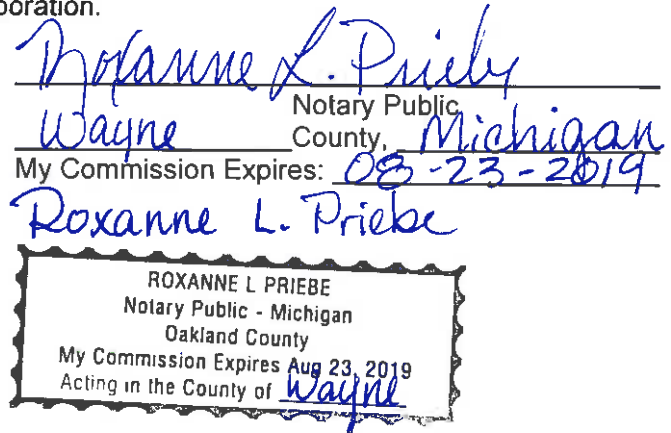 poration.
Roxanne L. Priebe
Notary Public
Wayne County, Michigan
My Commission Expires: 08-23-2019
Roxanne L. Priebe
ROXANNE L PRIEBE
Notary Public - Michigan
Oakland County
My Commission Expires Aug 23, 2019
Acting in the County of Wayne